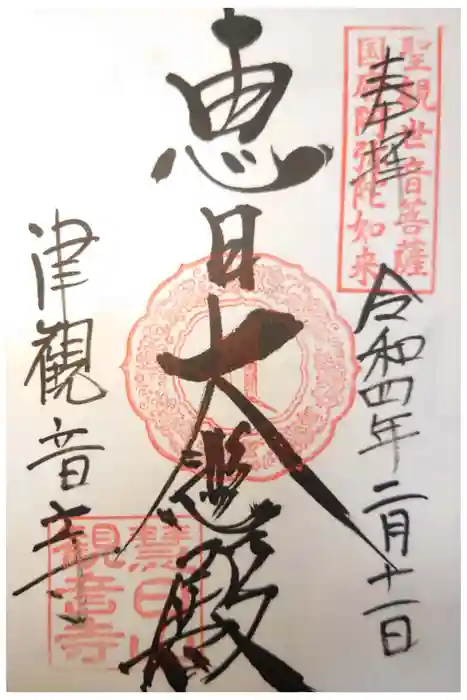 聖観世音菩薩
国府阿弥陀如来
奉拝
令和四年二月十一日
恵日大悲殿
津観音寺
慧日山
観音寺